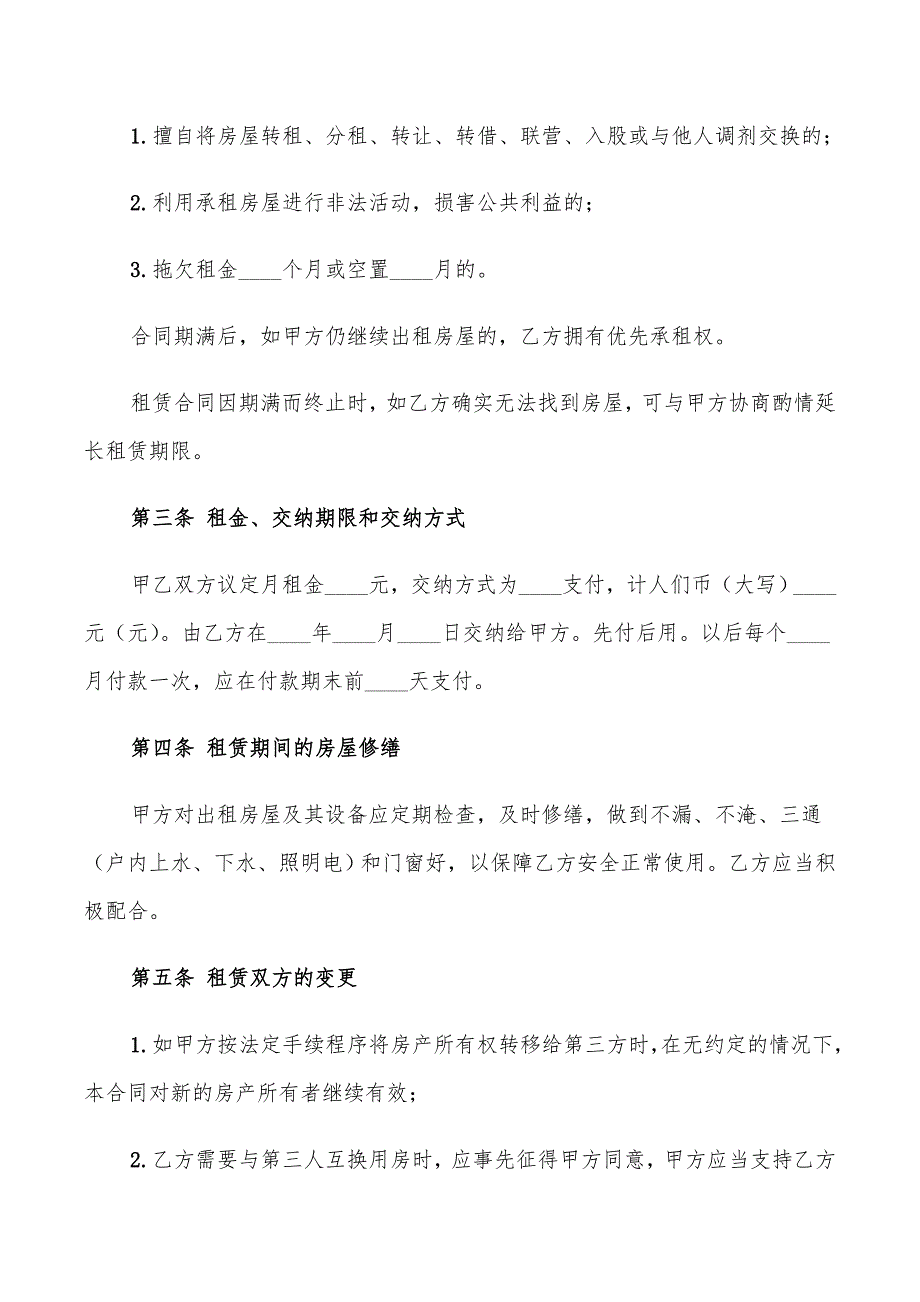 1.擅自将房屋转租、分租、转让、转借、联营、入股或与他人调剂交换的；
2.利用承租房屋进行非法活动，损害公共利益的；
3.拖欠租金____个月或空置____月的。
合同期满后，如甲方仍继续出租房屋的，乙方拥有优先承租权。
租赁合同因期满而终止时，如乙方确实无法找到房屋，可与甲方协商酌情延
长租赁期限。
第三条 租金、交纳期限和交纳方式
甲乙双方议定月租金____元，交纳方式为____支付，计人们币（大写）____
元（元）。由乙方在____年____月____日交纳给甲方。先付后用。以后每个____
月付款一次，应在付款期末前____天支付。
第四条 租赁期间的房屋修缮
甲方对出租房屋及其设备应定期检查，及时修缮，做到不漏、不淹、三通
（户内上水、下水、照明电）和门窗好，以保障乙方安全正常使用。乙方应当积
极配合。
第五条 租赁双方的变更
1.如甲方按法定手续程序将房产所有权转移给第三方时，在无约定的情况下，
本合同对新的房产所有者继续有效；
2.乙方需要与第三人互换用房时，应事先征得甲方同意，甲方应当支持乙方